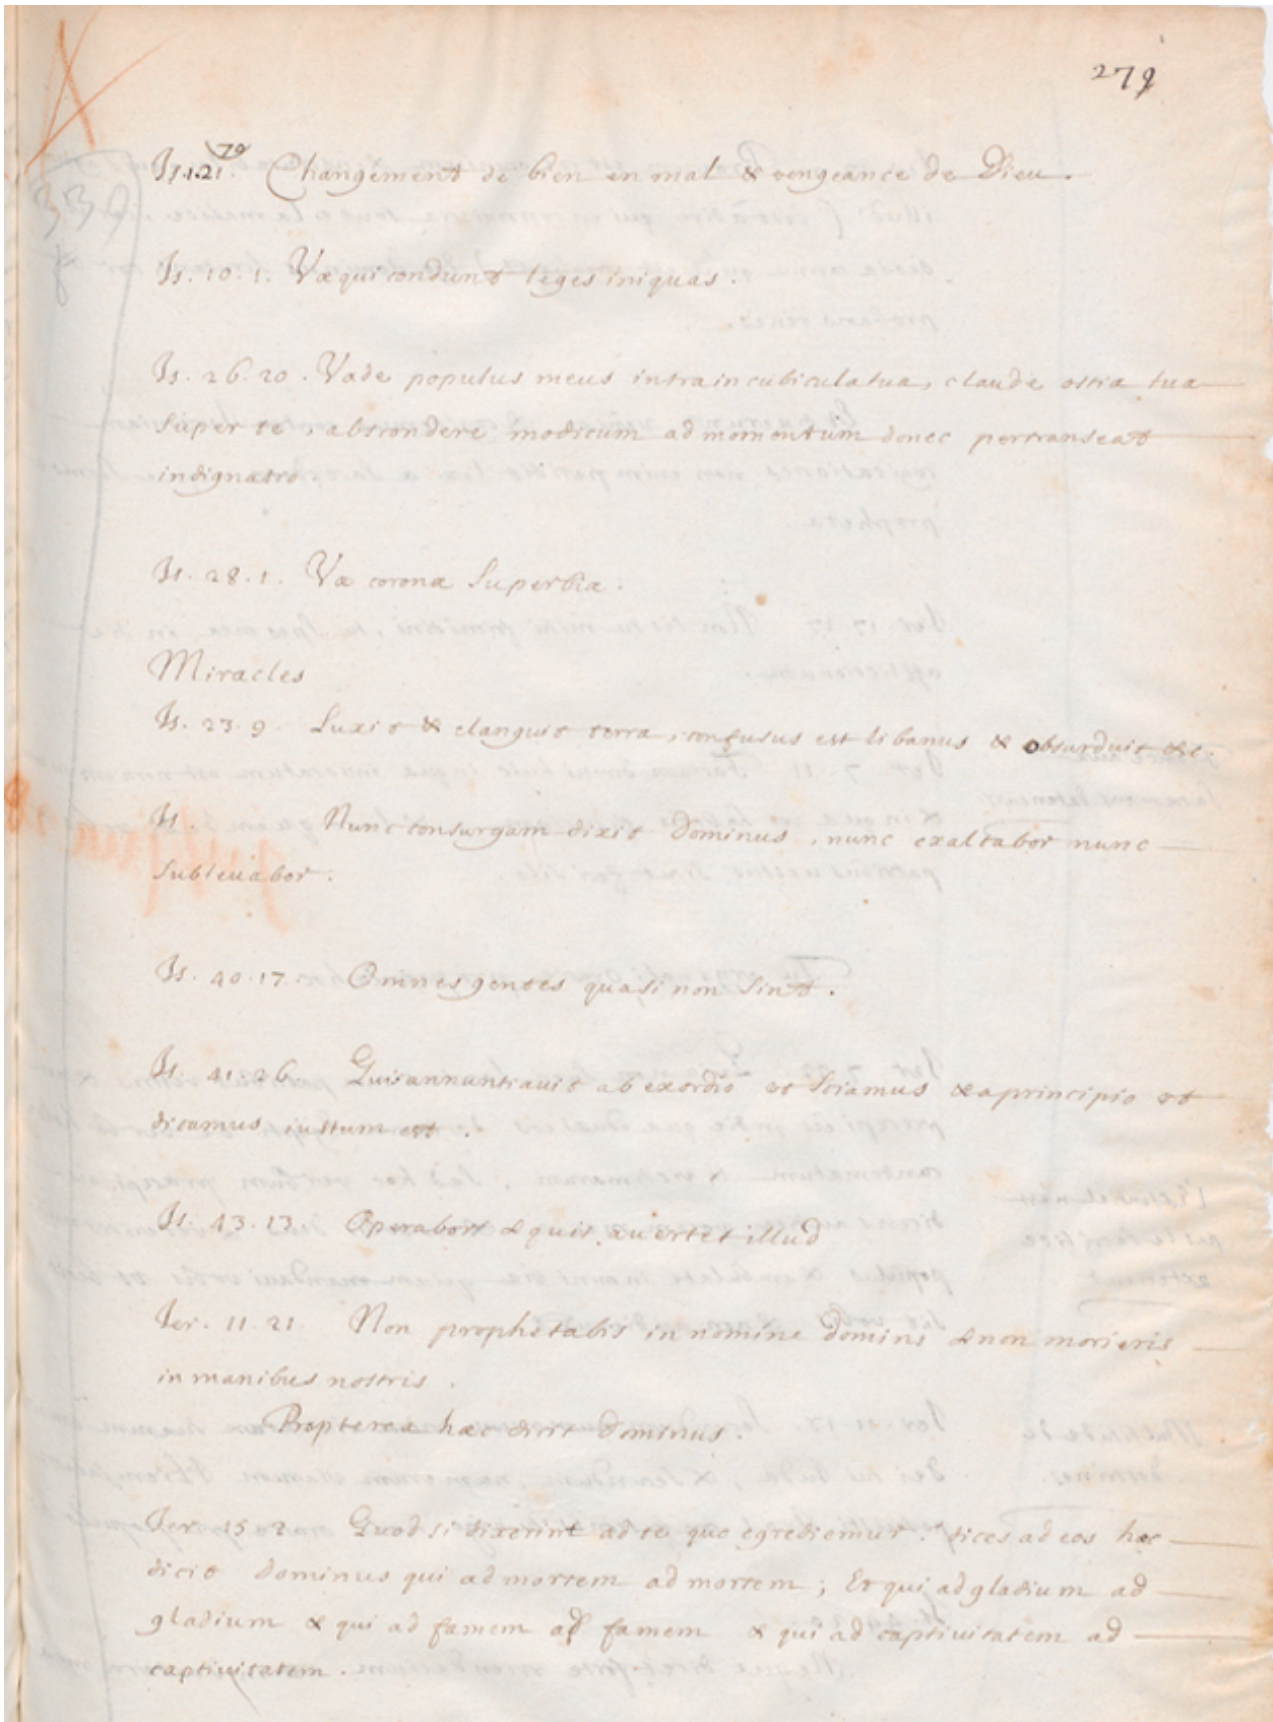 279
79
Is. 1. 21. Changement de bien en mal & vengeance de Dieu.
339
Is. 10. 1. Væ qui condunt leges iniquas.
Is. 26. 20. Vade populus meus intra in cubicula tua, claude ostia tua
super te, abscondere modicum ad momentum donec pertranseat
indignatio.
Is. 28. 1. Væ coronæ superbiæ.
Miracles
Is. 23. 9. Luxit & elanguit terra, confusus est libanus & obsurduit &c.
Is. Nunc consurgam dixit Dominus, nunc exaltabor nunc
sublevabor.
Is. 40. 17. Omnes gentes quasi non sint.
Is. 41. 26. Quis annuntiavit ab exordio ut sciamus & a principio ut
dicamus iustum est.
Is. 43. 13. Operabor & quis avertet illud
Ier. 11. 21. Non prophetabis in nomine Domini & non morieris
in manibus nostris.
Propterea hæc dicit Dominus.
Ier. 15. 2. Quod si dixerint ad te quo egrediemur? dices ad eos hæc
dicit Dominus qui ad mortem ad mortem; Et qui ad gladium ad
gladium & qui ad famem ad famem & qui ad captivitatem ad
captivitatem.